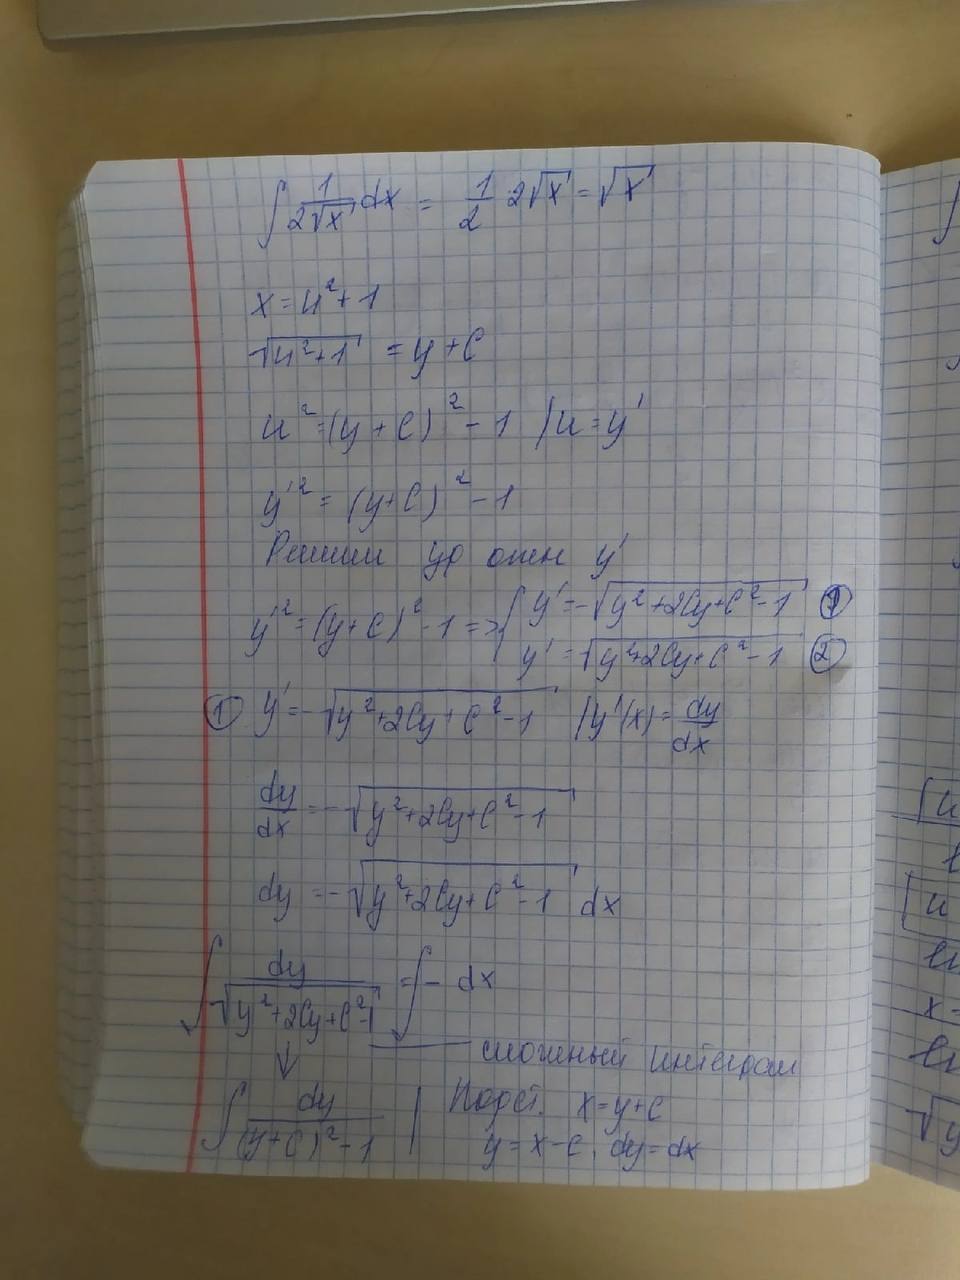 ∫ 1/(2√x) dx = 1/2 · 2√x = √x
x = u² + 1
√(u²+1) = y + C
u² = (y + C)² - 1 | u = y'
y'² = (y+C)² - 1
Решим ур отн y'
y'² = (y+C)² - 1 => { y' = -√(y²+2Cy+C²-1) ①
y' = √(y²+2Cy+C²-1) ②
① y' = -√(y²+2Cy+C²-1) | y'(x) = dy/dx
dy/dx = -√(y²+2Cy+C²-1)
dy = -√(y²+2Cy+C²-1) dx
∫ dy/√(y²+2Cy+C²-1) = ∫ - dx
↓ сложный интеграл
∫ dy/((y+C)²-1) | Подст. x = y+C
y = x-C, dy = dx